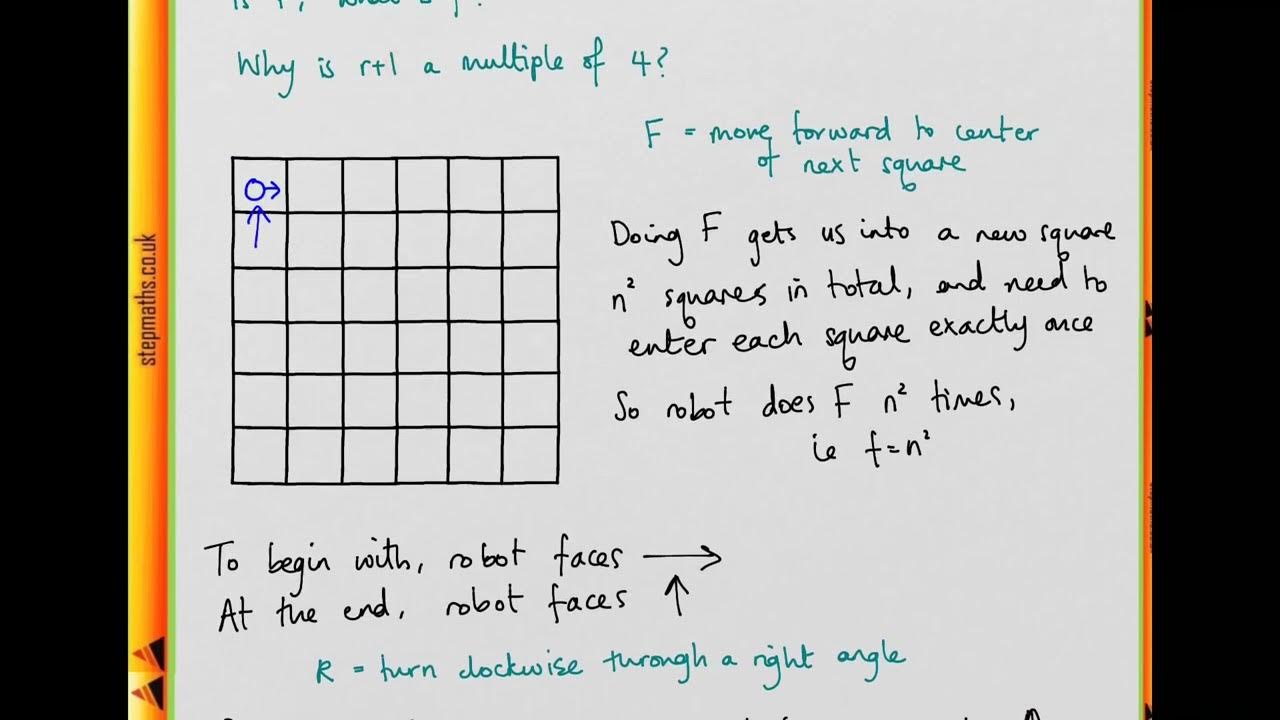 Why is r+1 a multiple of 4?
F = move forward to center
of next square
Doing F gets us into a new square
n² squares in total, and need to
enter each square exactly once
So robot does F n² times,
ie f=n²
To begin with, robot faces →
At the end, robot faces ↑
R = turn clockwise through a right angle
stepmaths.co.uk